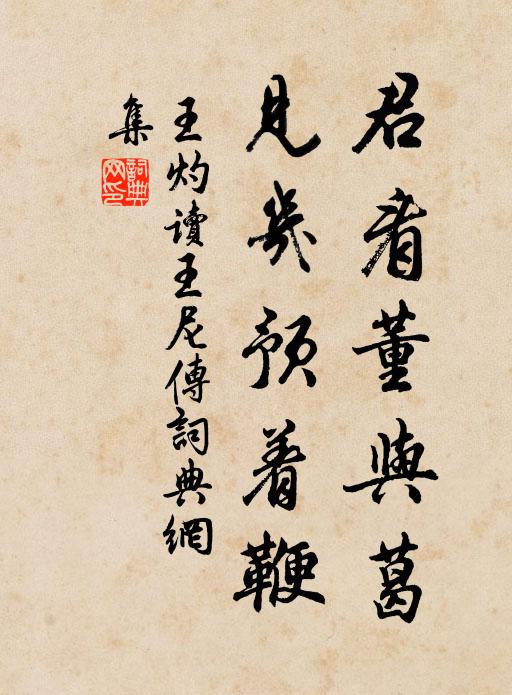 君看董與葛
見幾預着鞭
王灼讀王尼傳詞典網
集
詞典網印